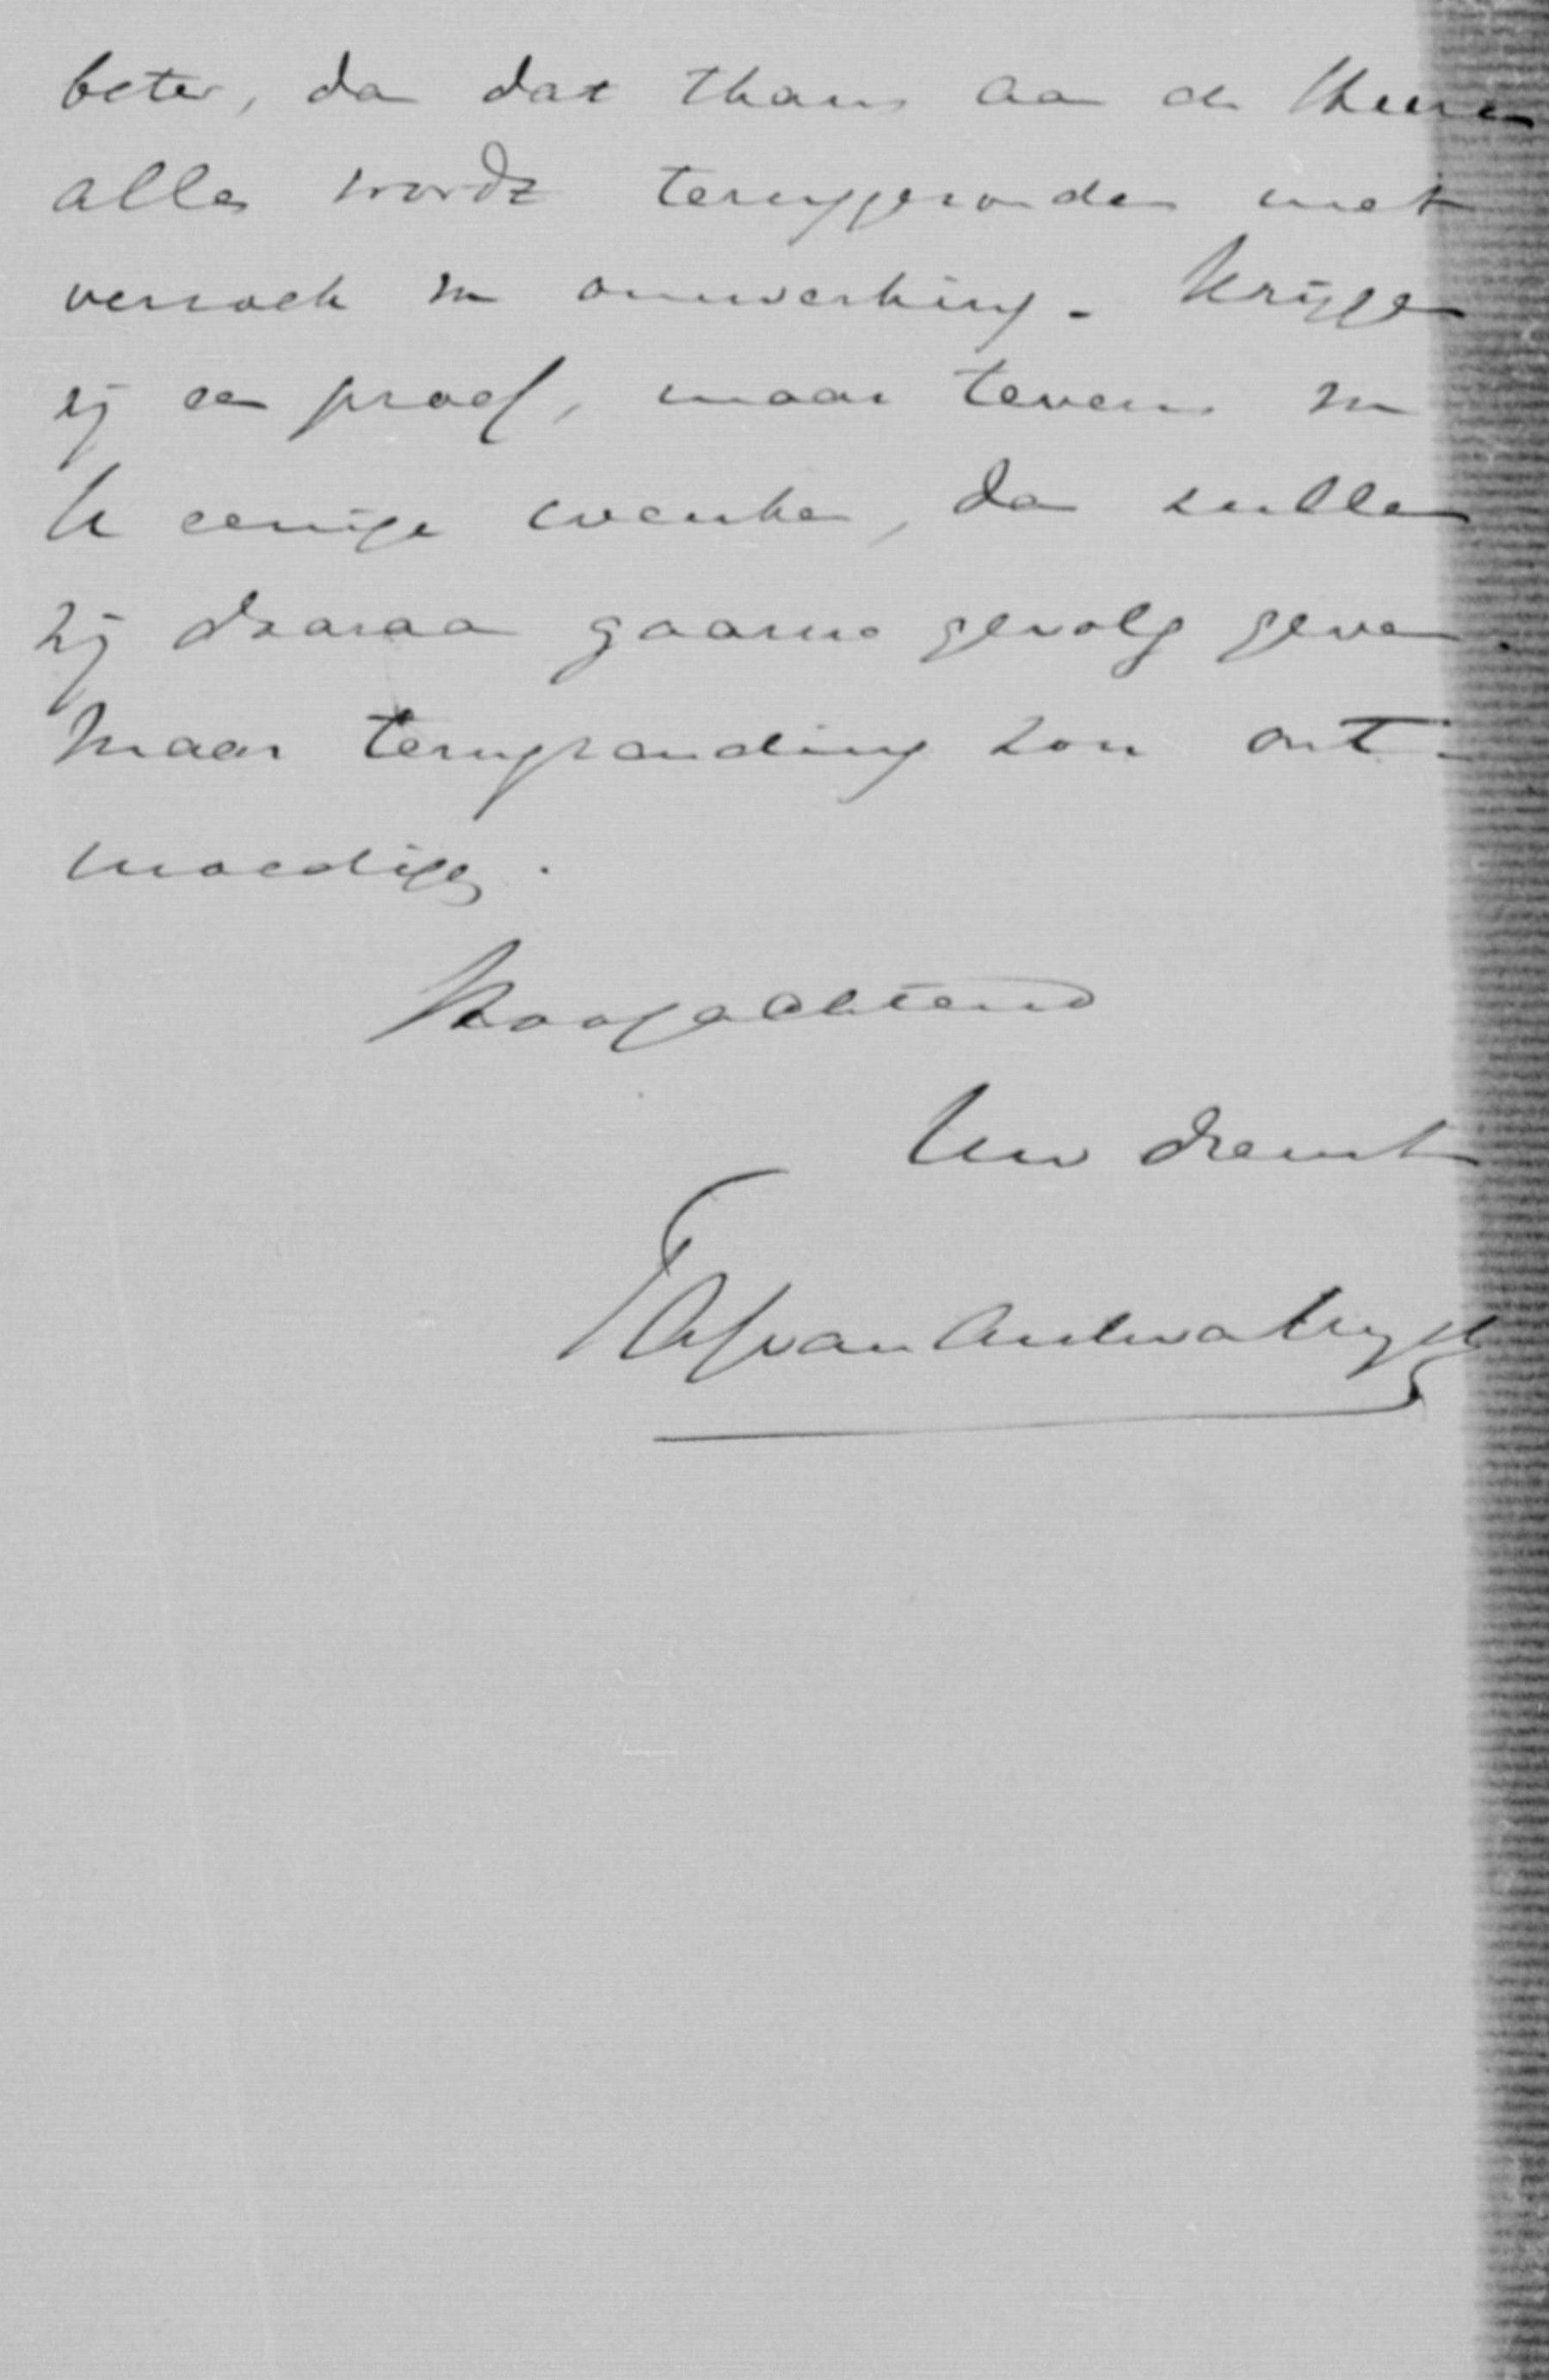 beter, dan dat thans aan de Heeren
alles wordt teruggezonden met
verzoek om omwerking. Krijgen
zij een proef, maar tevens van
U eenige wenken, dan zullen
zij daaraan gaarne gevolg geven.
Maar terugzending zou ont-
moedigen.
Hoogachtend
Uw dienst